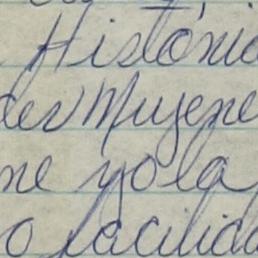 História
des Mujene
me yo la
o facilida